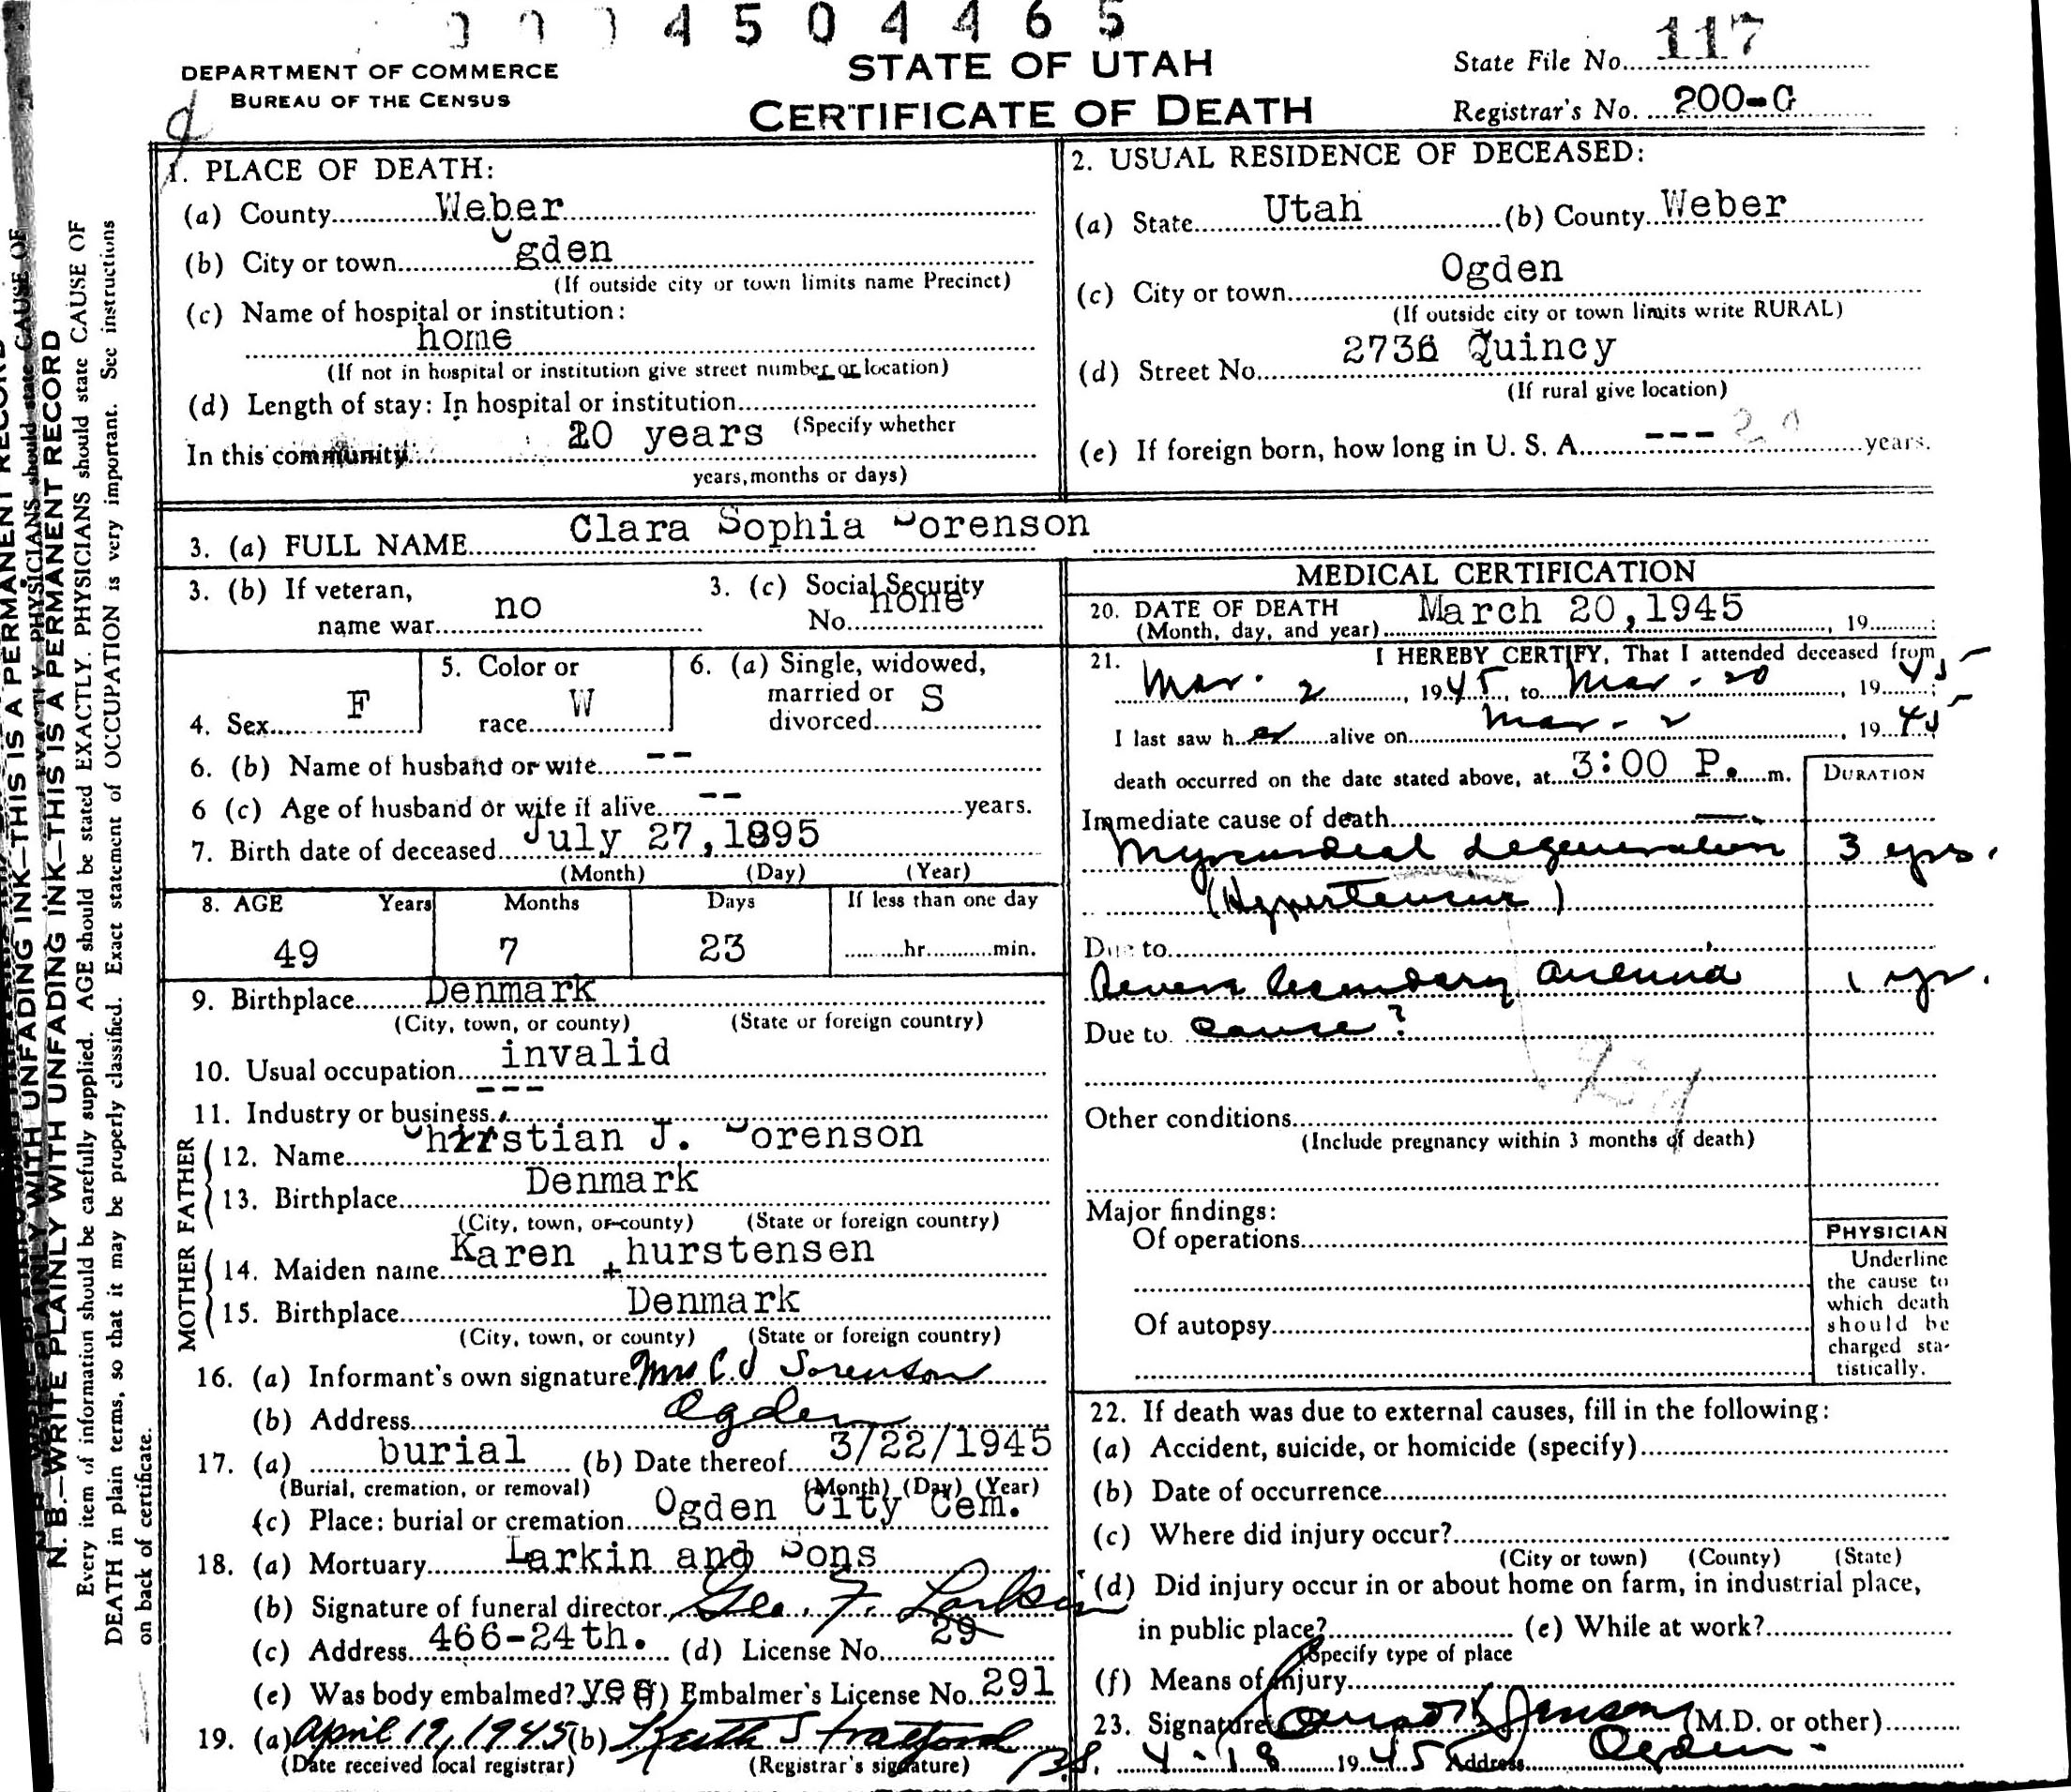 0004504465
DEPARTMENT OF COMMERCE
BUREAU OF THE CENSUS
STATE OF UTAH
CERTIFICATE OF DEATH
State File No. 117
Registrar's No. 200-G
1. PLACE OF DEATH:
(a) County Weber
(b) City or town Ogden
(If outside city or town limits name Precinct)
(c) Name of hospital or institution:
home
(If not in hospital or institution give street number or location)
(d) Length of stay: In hospital or institution
(Specify whether
In this community 20 years
years, months or days)
2. USUAL RESIDENCE OF DECEASED:
(a) State Utah (b) County Weber
(c) City or town Ogden
(If outside city or town limits write RURAL)
(d) Street No. 2736 Quincy
(If rural give location)
(e) If foreign born, how long in U. S. A. --- 20 years.
3. (a) FULL NAME Clara Sophia Sorenson
3. (b) If veteran,
name war no
3. (c) Social Security
No. none
4. Sex F
5. Color or
race W
6. (a) Single, widowed,
married or
divorced S
6. (b) Name of husband or wife --
6 (c) Age of husband or wife if alive -- years.
7. Birth date of deceased July 27, 1895
(Month) (Day) (Year)
8. AGE Years Months Days If less than one day
49 7 23 hr. min.
9. Birthplace Denmark
(City, town, or county) (State or foreign country)
10. Usual occupation invalid
11. Industry or business ---
FATHER
12. Name Christian J. Sorenson
13. Birthplace Denmark
(City, town, or county) (State or foreign country)
MOTHER
14. Maiden name Karen Thurstensen
15. Birthplace Denmark
(City, town, or county) (State or foreign country)
16. (a) Informant's own signature Mrs C. J Sorenson
(b) Address Ogden
17. (a) burial (b) Date thereof 3/22/1945
(Burial, cremation, or removal) (Month) (Day) (Year)
(c) Place: burial or cremation Ogden City Cem.
18. (a) Mortuary Larkin and Sons
(b) Signature of funeral director Geo. F. Larkin
(c) Address 466-24th. (d) License No. 29
(e) Was body embalmed? yes (f) Embalmer's License No. 291
19. (a) April 19, 1945 (b) Keith Stratford
(Date received local registrar) (Registrar's signature)
MEDICAL CERTIFICATION
20. DATE OF DEATH March 20, 1945
(Month, day, and year) , 19 ;
21. I HEREBY CERTIFY, That I attended deceased from
Mar. 2, 1945, to Mar. 20, 1945;
I last saw her alive on Mar - 2, 1945;
death occurred on the date stated above, at 3:00 P. m.
DURATION
Immediate cause of death
Myocardial degeneration 3 yrs.
(Hypertension)
Due to
Severe Secondary Anemia 1 yr.
Due to cause?
Other conditions
(Include pregnancy within 3 months of death)
Major findings:
Of operations
Of autopsy
PHYSICIAN
Underline
the cause to
which death
should be
charged sta-
tistically.
22. If death was due to external causes, fill in the following:
(a) Accident, suicide, or homicide (specify)
(b) Date of occurrence
(c) Where did injury occur?
(City or town) (County) (State)
(d) Did injury occur in or about home on farm, in industrial place,
in public place? (e) While at work?
(Specify type of place
(f) Means of injury
23. Signature Jenson (M.D. or other)
4-18 1945 Address Ogden
N. B.—WRITE PLAINLY WITH UNFADING INK—THIS IS A PERMANENT RECORD
Every item of information should be carefully supplied. AGE should be stated EXACTLY. PHYSICIANS should state CAUSE OF
DEATH in plain terms, so that it may be properly classified. Exact statement of OCCUPATION is very important. See instructions
on back of certificate.